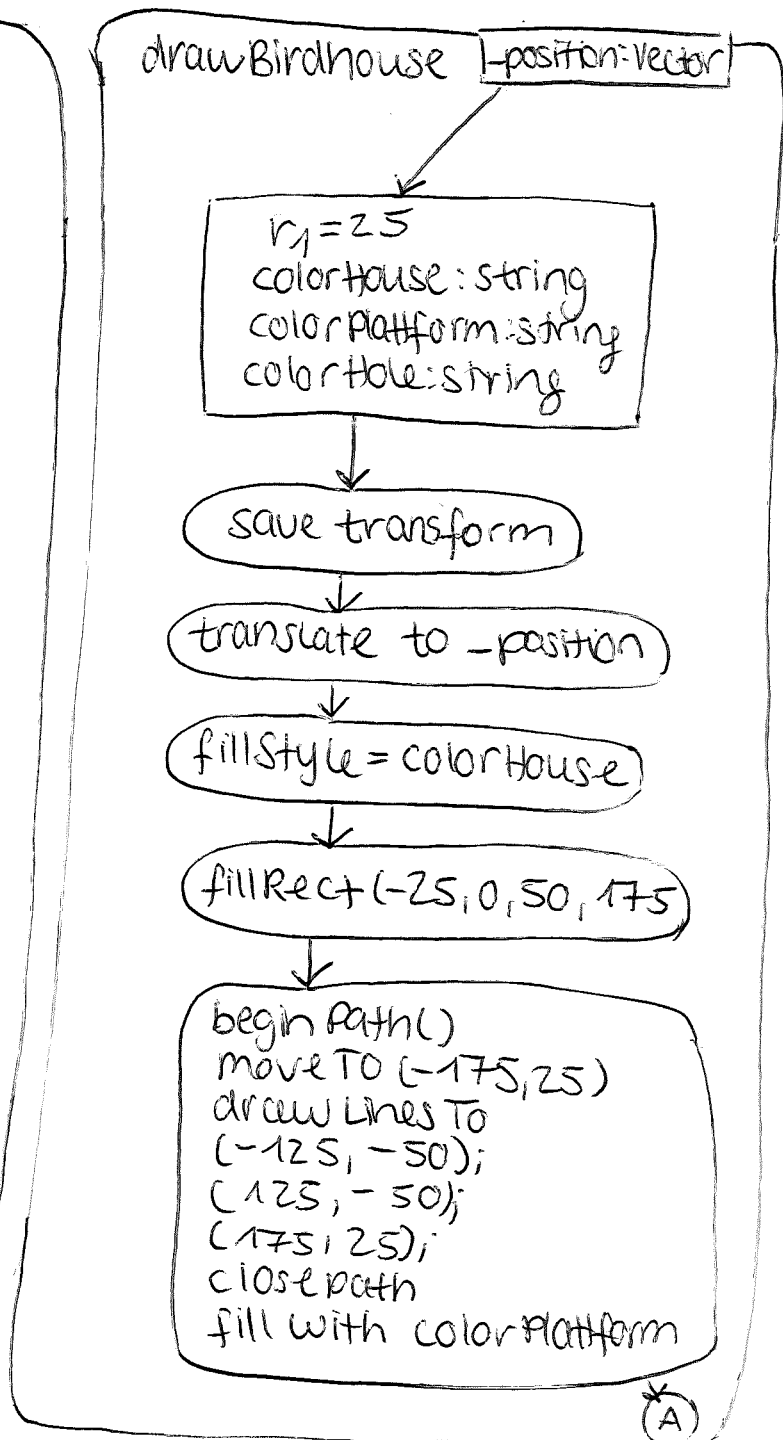 drawBirdhouse _position:Vector
r1=25
colorHouse:string
colorPlattform:string
colorHole:string
save transform
translate to _position
fillStyle=colorHouse
fillRect(-25,0,50,175
beginPath()
moveTo(-175,25)
drawLinesTo
(-125,-50);
(125,-50);
(175,25);
closepath
fill with colorPlattform
A